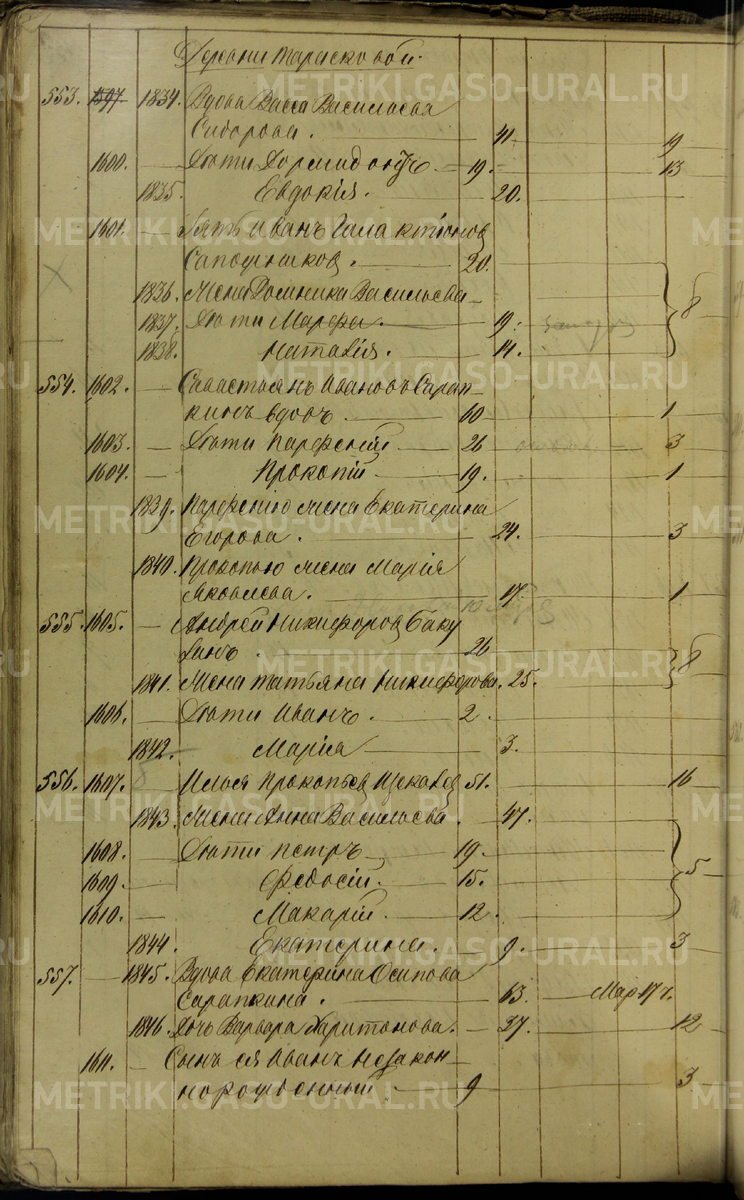 Деревни Тарасковой.
553. 1597 1834. Вдова Васса Васильева
Сидорова. 41 19
1600. — Дѣти Дормидонтъ — 19. 13
1835. Евдокія. 20.
1601. — Зять Иванъ Галактіонов
Сапожников. 20.
1836. Жена Домника Васильева 8
1837. Дѣти Марфа. 19.
1838. Наталія. 14.
554. 1602. — Савастьянъ Ивановъ Сарап-
кинъ вдовъ. 60 1
1603. — Дѣти Парфеній — 26 3
1604. — Прокопій — 19. 1
1839. Парфенію жена Екатерина
Егорова. 24. 3
1840. Прокопью жена Марія
Яковлева. 17. 1
555. 1605. — Андрей Никифоров Баку
линъ. 26 8
1841. Жена Татьяна Никифорова. 25.
1606. — Дѣти Иванъ. — 2.
1842. — Марія — 3.
556. 1607. — Илья Прокопьев Щекалев 51. 16
1843. Жена Анна Васильева. — 47.
1608. — Дѣти Петръ — 19.
1609. — Федосій. — 15. 5
1610. — Макарій. — 12.
1844. Екатерина. — 9. 3
557. — 1845. Вдова Екатерина Осипова
Сарапкина. 63. — Мар 17 г.
1846. Дочь Варвара Харитонова. — 37. 12
1611. — Сынъ ея Иванъ незакон-
норожденный — 9 3
METRIKI.GASO-URAL.RU